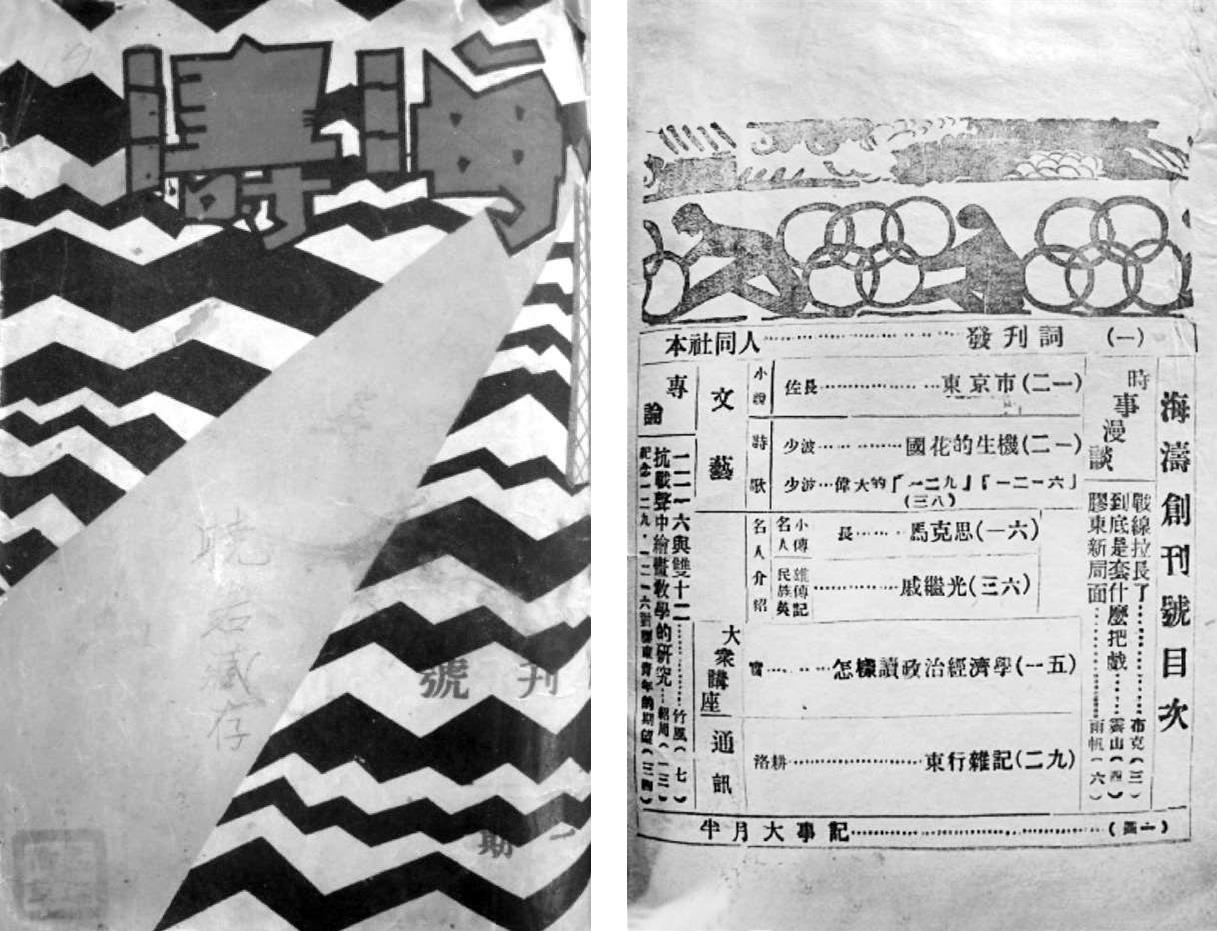 海濤
藏存
刊號
一期
海濤創刊號目次
本社同人……發刊詞(一)
時事漫談
戰線拉長了……布克(三)
到底是套什麼把戲……雲山(四)
膠東新局面……雨帆(六)
專論
一二一六與雙十二……竹風(七)
抗戰聲中繪畫教學的研究……紹周(一三)
紀念一二九·一二一六對膠東青年的期望(三四)
文藝
小說
佐長……東京市(二一)
詩歌
少波……國花的生機(二一)
少波…偉大的「一二九」「一二一六」(三八)
名人介紹
名人小傳
長……馬克思(一六)
民族英雄傳記
……戚繼光(三六)
大衆講座
……怎樣讀政治經濟學(一五)
通訊
洛耕……東行雜記(二九)
半月大事記……